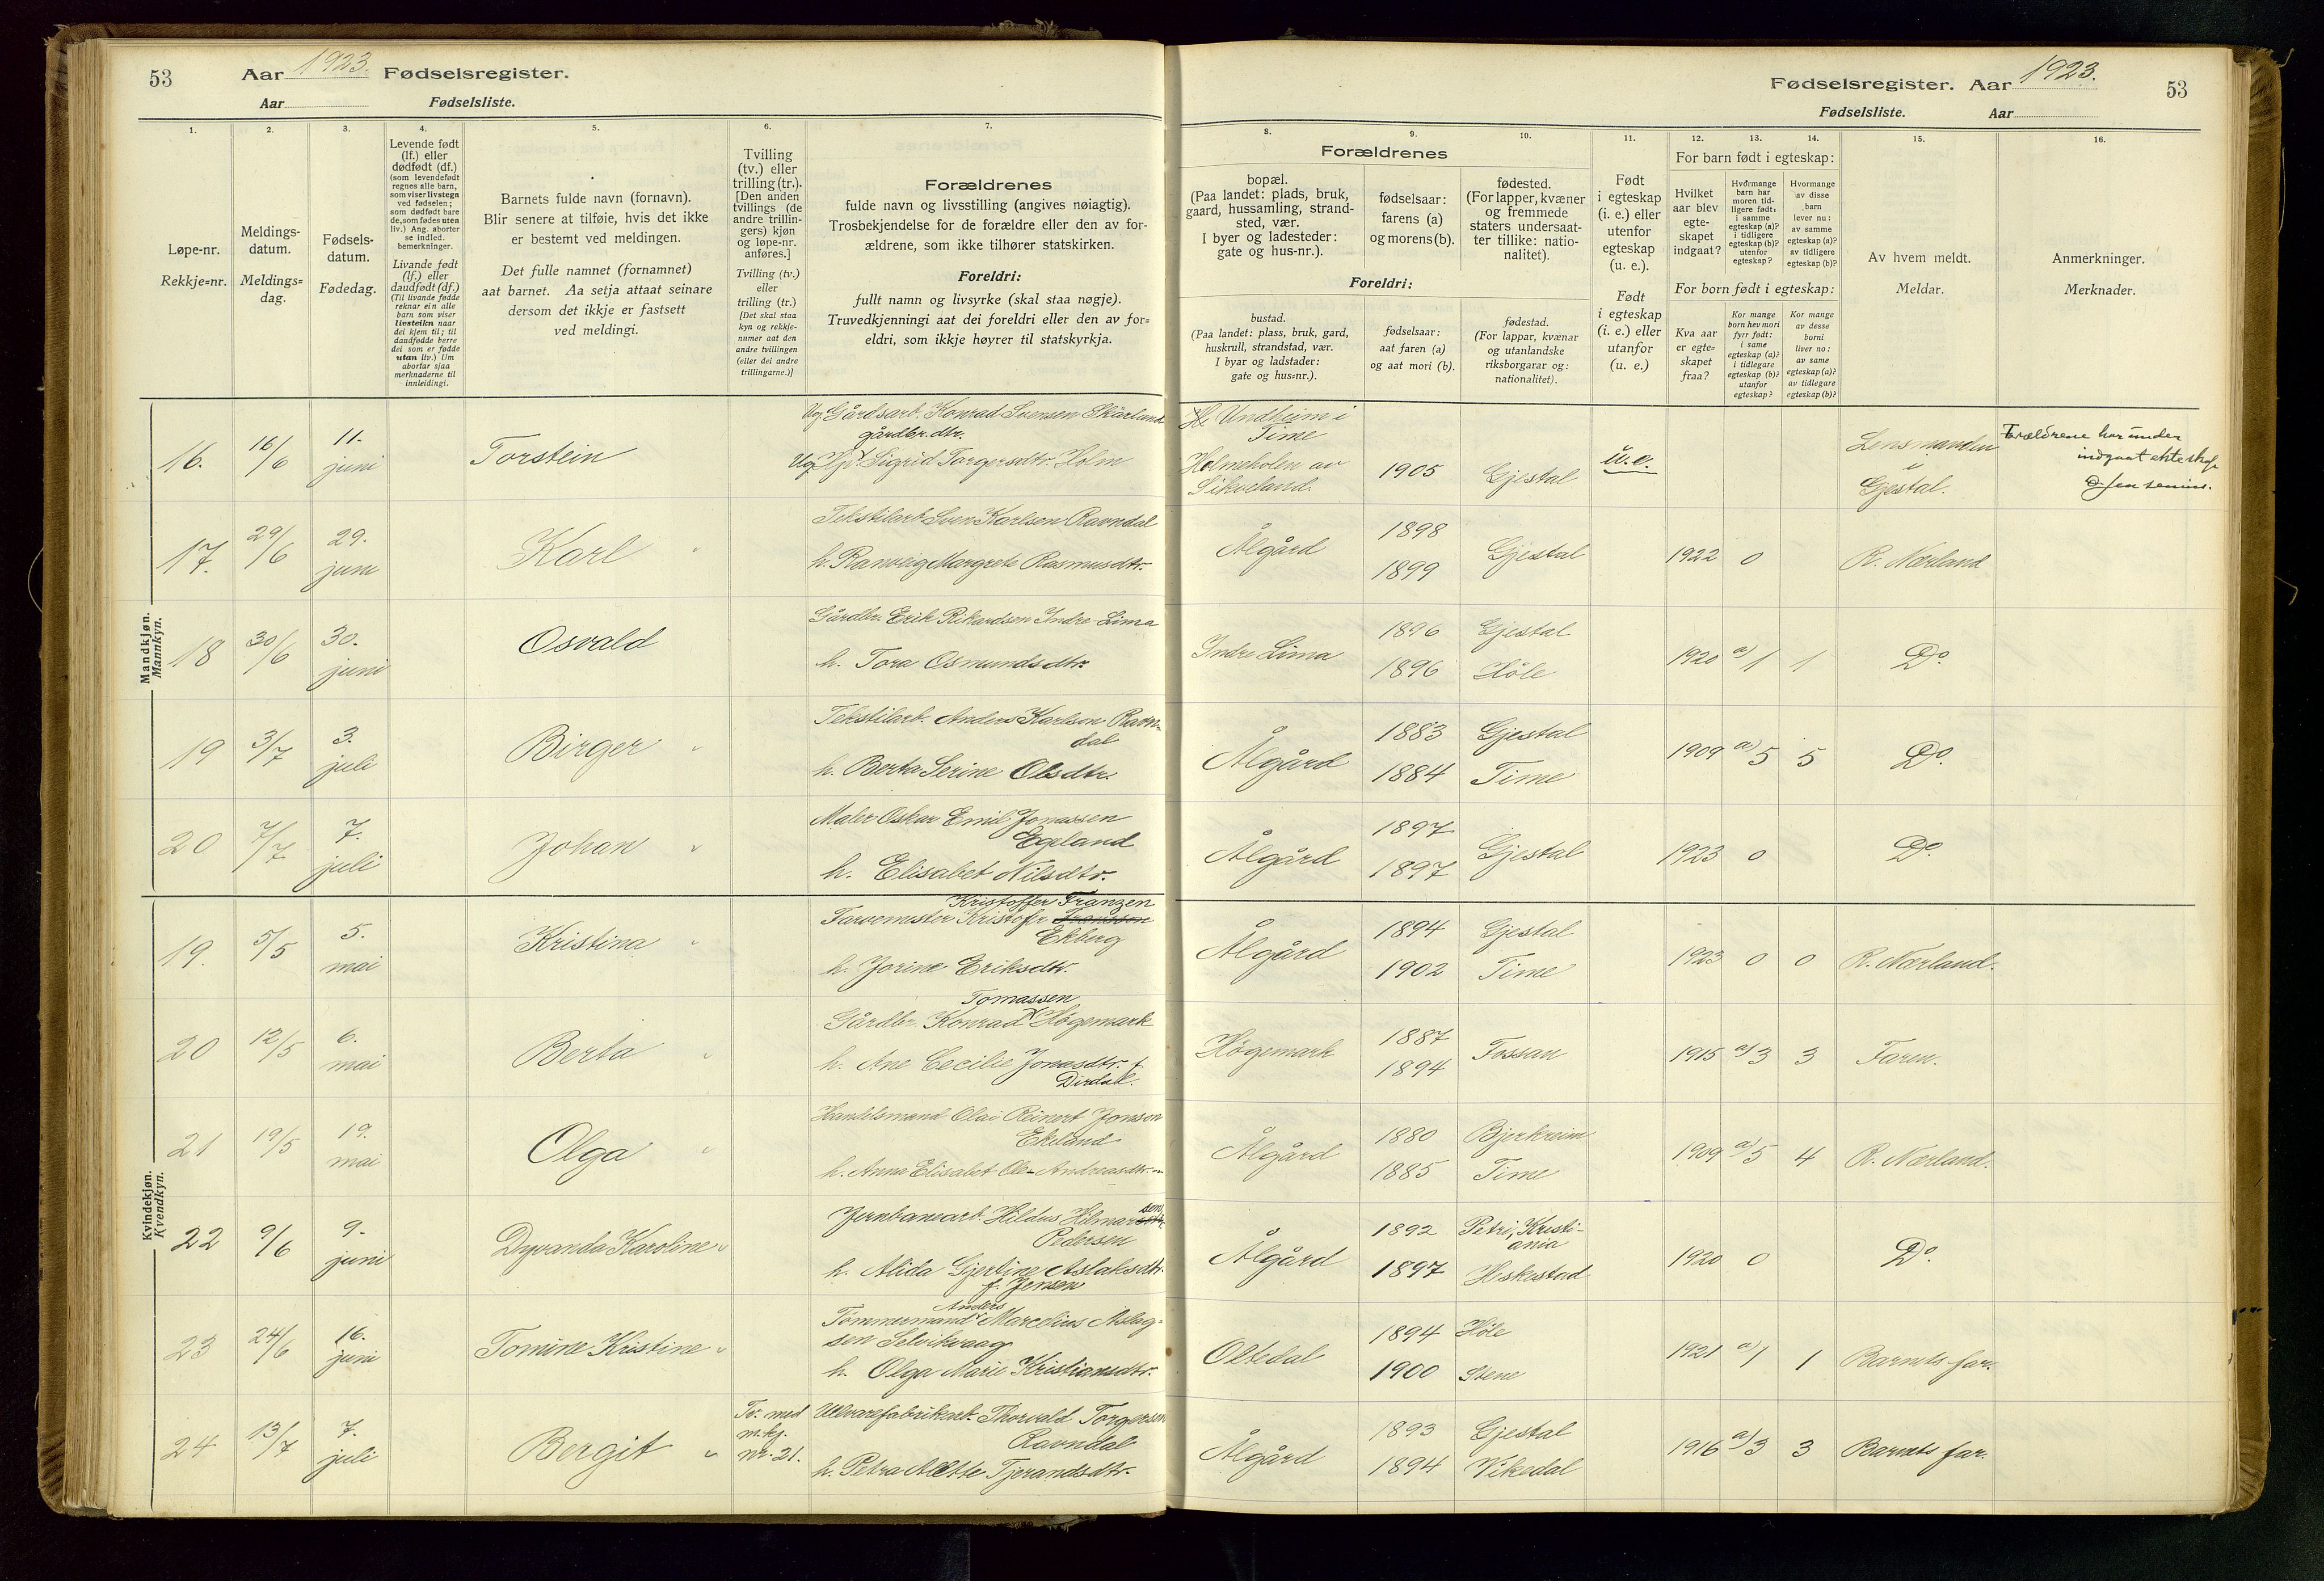 53
Aar 1923. Fødselsregister.
Aar Fødselsliste.
1.
Løpe-nr.
Rekkje=nr.
2.
Meldings-
datum.
Meldings=
dag.
3.
Fødsels-
datum.
Fødedag.
4.
Levende født
(lf.) eller
dødfødt (df.)
(som levendefødt
regnes alle barn,
som viser livstegn
ved fødselen;
som dødfødt bare
de, som fødes uten
liv.) Ang. aborter
se indled.
bemerkninger.
Livande født
(lf.) eller
daudfødt (df.)
(Til livande fødde
reknar ein alle
barn som viser
livsteikn naar
dei kjem til; til
daudfødde berre
dei som er fødde
utan liv.) Um
abortar sjaa
merknaderne til
innleidingi.
5.
Barnets fulde navn (fornavn).
Blir senere at tilføie, hvis det ikke
er bestemt ved meldingen.
Det fulle namnet (fornamnet)
aat barnet. Aa setja attaat seinare
dersom det ikkje er fastsett
ved meldingi.
6.
Tvilling
(tv.) eller
trilling (tr.).
[Den anden
tvillings (de
andre trillin-
gers) kjøn
og løpe-nr.
anføres.]
Tvilling (tv.)
eller
trilling (tr.)
[Det skal staa
kyn og rekkje-
numer aat den
andre tvillingen
(eller dei andre
trillingarne.)]
7.
Forældrenes
fulde navn og livsstilling (angives nøiagtig).
Trosbekjendelse for de forældre eller den av for-
ældrene, som ikke tilhører statskirken.
Foreldri:
fullt namn og livsyrke (skal staa nøgje).
Truvedkjenningi aat dei foreldri eller den av for=
eldri, som ikkje høyrer til statskyrkja.
Mandkjøn.
Mannkyn.
16. 16/6 11. juni Torstein
Ug. Gårdsarb. Konrad Svensen Skårland
gårdbr. dtr.
Ug. Sigrid Torgersdtr. Holm
17. 29/6 29. juni Karl "
Tekstilarb. Sven Karlsen Ravndal
h. Ranveig Margrete Rasmusdtr.
18 30/6 30. juni Osvald
Gårdbr. Erik Rikardsen Indre-Lima
h. Tora Osmundsdtr.
19 3/7 3. juli Birger "
Tekstilarb. Anders Karlson Ravn-
dal
h. Berta Serine Olsdtr.
20 7/7 7. juli Johan "
Maler Oskar Emil Jonassen
Egeland
h. Elisabet Nilsdtr.
Kvindekjøn.
Kvendkyn.
19. 5/5 5. mai Kristina "
Kristoffer Franzen
Farvemester Kristofr
Ekberg
h. Jorine Eriksdtr.
20 12/5 6. mai Berta "
Tomassen
Gårdbr. Konrad Høgemark
h. Ane Cecilie Jonasdtr. f.
Dirdal.
21 19/5 19. mai Olga "
Handelsmand Olai Reinert Jonsen
Ekeland
h. Anna Elisabet Ole-Andreasdtr.
22 9/6 9. juni Dyvanda Karoline "
Jernbanearb. Hildus Hilmar sen
Pedersen
h. Alida Gjertine Aslaksdtr.
f. Jensen
23 24/6 16. juni Tomine Kristine "
Anders
Tømmermand Marcelius Aslag-
sen Selvikvaag
h. Olga Marie Kristiansdtr.
24 13/7 7. juli Bergit "
Tv. med
m.kj.
nr. 21.
Ullvarefabrikarb. Thorvald Torgersen
Ravndal
h. Petra Alette Tjerandsdtr.
Fødselsregister. Aar 1923.
53
Fødselsliste. Aar
8.
Forældrenes
bopæl.
(Paa landet: plads, bruk,
gaard, hussamling, strand-
sted, vær.
I byer og ladesteder:
gate og hus-nr.).
9.
fødselsaar:
farens (a)
og morens (b).
10.
fødested.
(For lapper, kvæner
og fremmede
staters undersaat-
ter tillike: natio-
nalitet).
Foreldri:
bustad.
(Paa landet: plass, bruk, gard,
huskrull, strandstad, vær.
I byar og ladstader:
gate og hus=nr.).
fødselsaar:
aat faren (a)
og aat mori (b).
fødestad.
(For lappar, kvænar
og utanlandske
riksborgarar og:
nationalitet).
11.
Født
i egteskap
(i. e.) eller
utenfor
egteskap
(u. e.).
Født
i egteskap
(i. e.) eller
utanfor
(u. e.)
12. 13. 14.
For barn født i egteskap:
Hvilket
aar blev
egte-
skapet
indgaat?
Hvormange
barn har
moren tid-
ligere født:
i samme
egteskap (a)?
i tidligere
egteskap (b)?
utenfor
egteskap?
Hvormange
av disse
barn
lever nu:
av samme
egteskap (a)?
av tidligere
egteskap (b)?
For born født i egteskap:
Kva aar
er egte=
skapet
fraa?
Kor mange
born hev mori
fyrr født:
i same
egteskap (a)?
i tidlegare
egteskap (b)?
utanfor
egteskap?
Kor mange
av desse
borni
liver no:
av same
egteskap (a)?
av tidlegare
egteskap (b)?
15.
Av hvem meldt.
Meldar.
16.
Anmerkninger.
Merknader.
Undheim i
Time
Holmeholen av
Sikveland.
1905 Gjestal u.e.
Lensmanden
i
Gjestal.
Forældrene har under
indgaat ekteskap

Ålgård 1898 1899 Gjestal 1922 0 R. Nærland
Indre Lima 1896 Gjestal
1896 Høle 1920 a) 1 1 Do.
Ålgård 1883 Gjestal
1884 Time 1909 a) 5 5 Do.
Ålgård 1897 1897 Gjestal 1923 0 Do.
Ålgård 1894 Gjestal
1902 Time 1923 0 0 R. Nærland.
Høgemark 1887 1894 Fossan 1915 a) 3 3 Faren.
Ålgård 1880 Bjerkreim
1885 Time 1909 a) 5 4 R. Nærland.
Ålgård 1892 Petri, Kristi-
ania
1897 Heskestad 1920 0 Do.
Oltedal 1894 Høle
1900 1921 a) 1 1 Barnets far.
Ålgård 1893 Gjestal
1894 Vikedal 1916 a) 3 3 Barnets far.